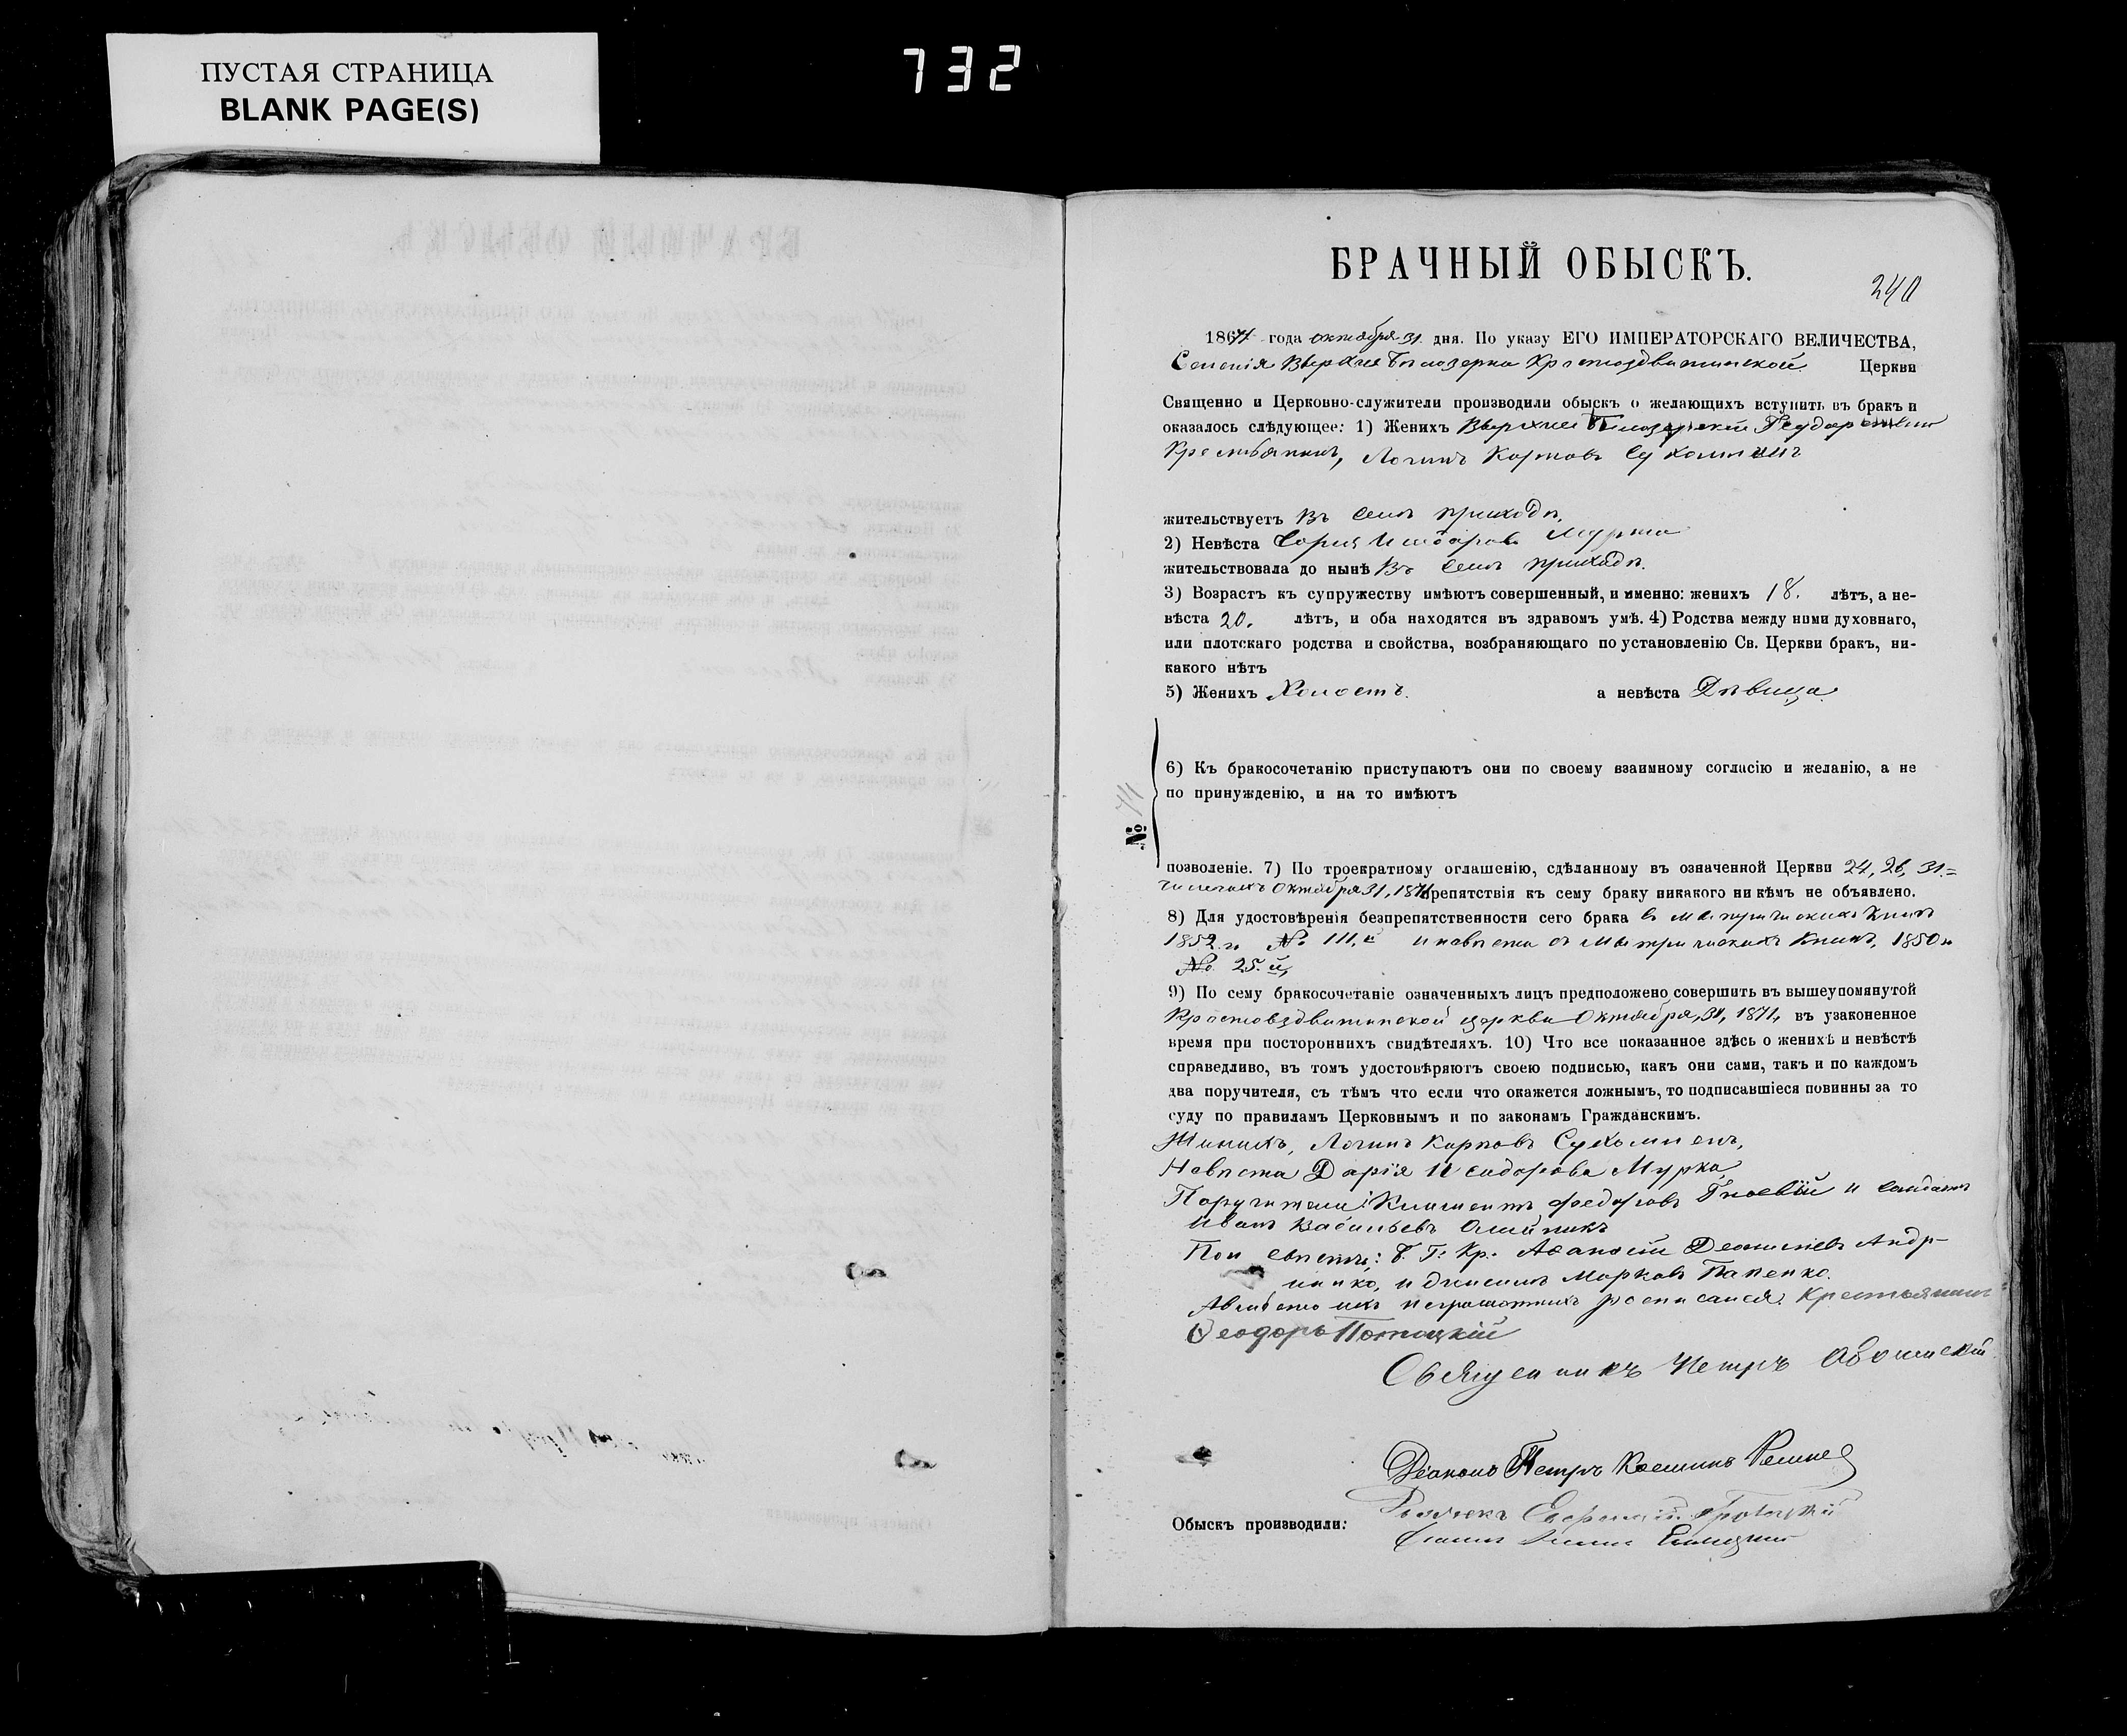 ПУСТАЯ СТРАНИЦА
BLANK PAGE(S)
732
БРАЧНЫЙ ОБЫСКЪ.
240
1871 года октября 31 дня. По указу ЕГО ИМПЕРАТОРСКАГО ВЕЛИЧЕСТВА,
Селенія Верхне Бѣлозерки Крестоздвиженской Церкви
Священно и Церковно-служители производили обыскъ о желающихъ вступить въ бракъ и
оказалось слѣдующее: 1) Женихъ Верхне Бѣлозерскій
Крестьянинъ, Логинъ Карповъ Сухомлинъ
жительствуетъ въ семъ приходѣ.
2) Невѣста Исидорова Мурка
жительствовала до нынѣ въ семъ приходѣ.
3) Возрастъ къ супружеству имѣютъ совершенный, и именно: женихъ 18. лѣтъ, а не-
вѣста 20. лѣтъ, и оба находятся въ здравомъ умѣ. 4) Родства между ними духовнаго,
или плотскаго родства и свойства, возбраняющаго по установленію Св. Церкви бракъ, ни-
какого нѣтъ
5) Женихъ Холостъ. а невѣста Дѣвица.
6) Къ бракосочетанію приступаютъ они по своему взаимному согласію и желанію, а не
по принужденію, и на то имѣютъ
№
позволеніе. 7) По троекратному оглашенію, сдѣланному въ означенной Церкви 24, 26, 31.=
числахъ Октября 31, 1871 препятствія къ сему браку никакого ни кѣмъ не объявлено.
8) Для удостовѣренія безпрепятственности сего брака въ метрическихъ книгъ
1852 г. № 111.й и невѣста съ метрическихъ книгъ, 1850 г.
№ 25.й,
9) По сему бракосочетаніе означенныхъ лицъ предположено совершить въ вышеупомянутой
Крестовздвиженской церкви Октября, 31, 1871, въ узаконенное
время при постороннихъ свидѣтеляхъ. 10) Что все показанное здѣсь о женихѣ и невѣстѣ
справедливо, въ томъ удостовѣряютъ своею подписью, какъ они сами, такъ и по каждомъ
два поручителя, съ тѣмъ что если что окажется ложнымъ, то подписавшіеся повинны за то
суду по правиламъ Церковнымъ и по законамъ Гражданскимъ.
Женихъ, Логинъ Карповъ Сухомлинъ,
Невѣста Дарія Исидорова Мурка
Поручители: Климентъ Федоровъ Гноевій и солдатъ
Иванъ Васильевъ Олейникъ
По невѣстѣ: Кр. Афанасій Андр-
іенко, и Марковъ Папенко.
А вмѣсто ихъ неграмотныхъ росписался Крестьянинъ
Ѳеодоръ Потоцкій
Священникъ Петръ
Діаконъ Петръ
Обыскъ производили: